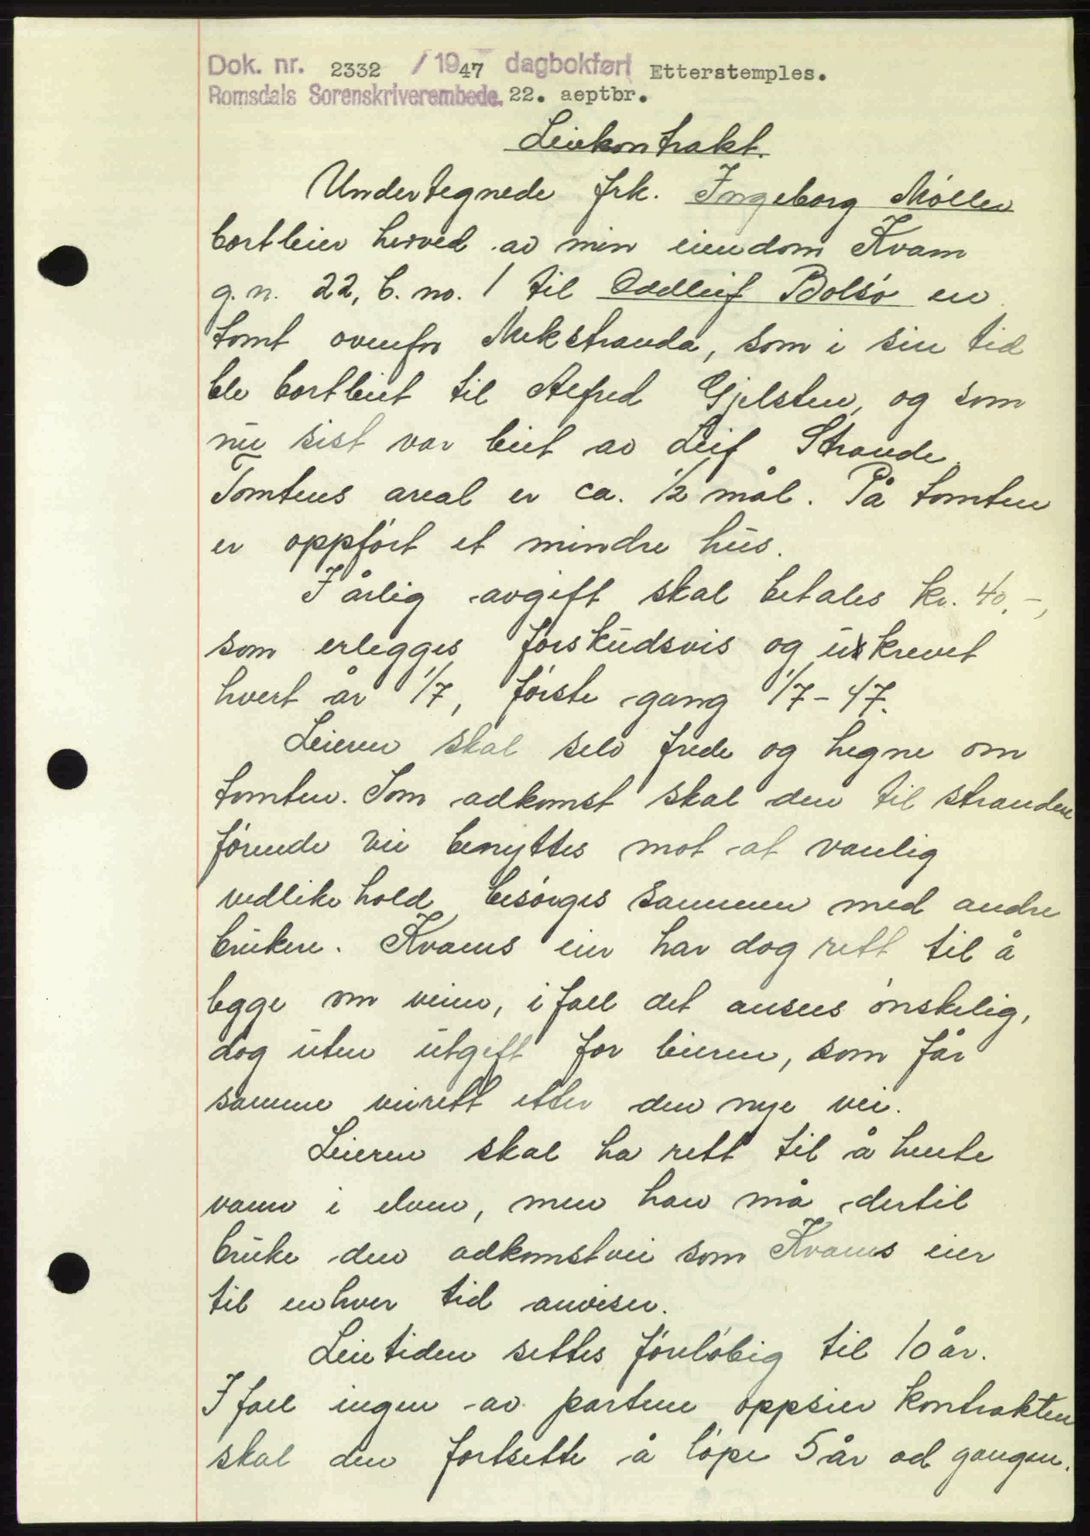 Dok. nr. 2332 / 1947 dagbokført Etterstemples.
Romsdals Sorenskriverembede. 22. aeptbr.
Leiekontrakt.
Undertegnede frk. Ingeborg Møller
bortleier herved av min eiendom Kvam
g.n. 22, b. no. 1 til Oddleif Bolsø en
tomt ovenfor Mekstranda, som i sin tid
ble bortleiet til Alfred Gjelsten, og som
nu sist var leiet av Leif Strande.
Tomtens areal er ca. 1/2 mål. På tomten
er oppført et mindre hus.
I årlig avgift skal betales kr. 40.-,
som erlegges forskudsvis og ukrevet
hvert år 1/7, første gang 1/7-47.
Leieren skal selv frede og hegne om
tomten. Som adkomst skal den til stranden
førende vei benyttes mot at vanlig
vedlikehold besørges sammen med andre
brukere. Kvams eier har dog rett til å
legge om veien, i fall det ansees ønskelig,
dog uten utgift for leieren, som får
samme veirett etter den nye vei.
Leieren skal ha rett til å hente
vann i elven, men han må dertil
bruke den adkomstvei som Kvams eier
til enhver tid anviser.
Leietiden settes foreløbig til 10 år.
I fall ingen av partene oppsier kontrakten
skal den fortsette å løpe 5 år ad gangen.